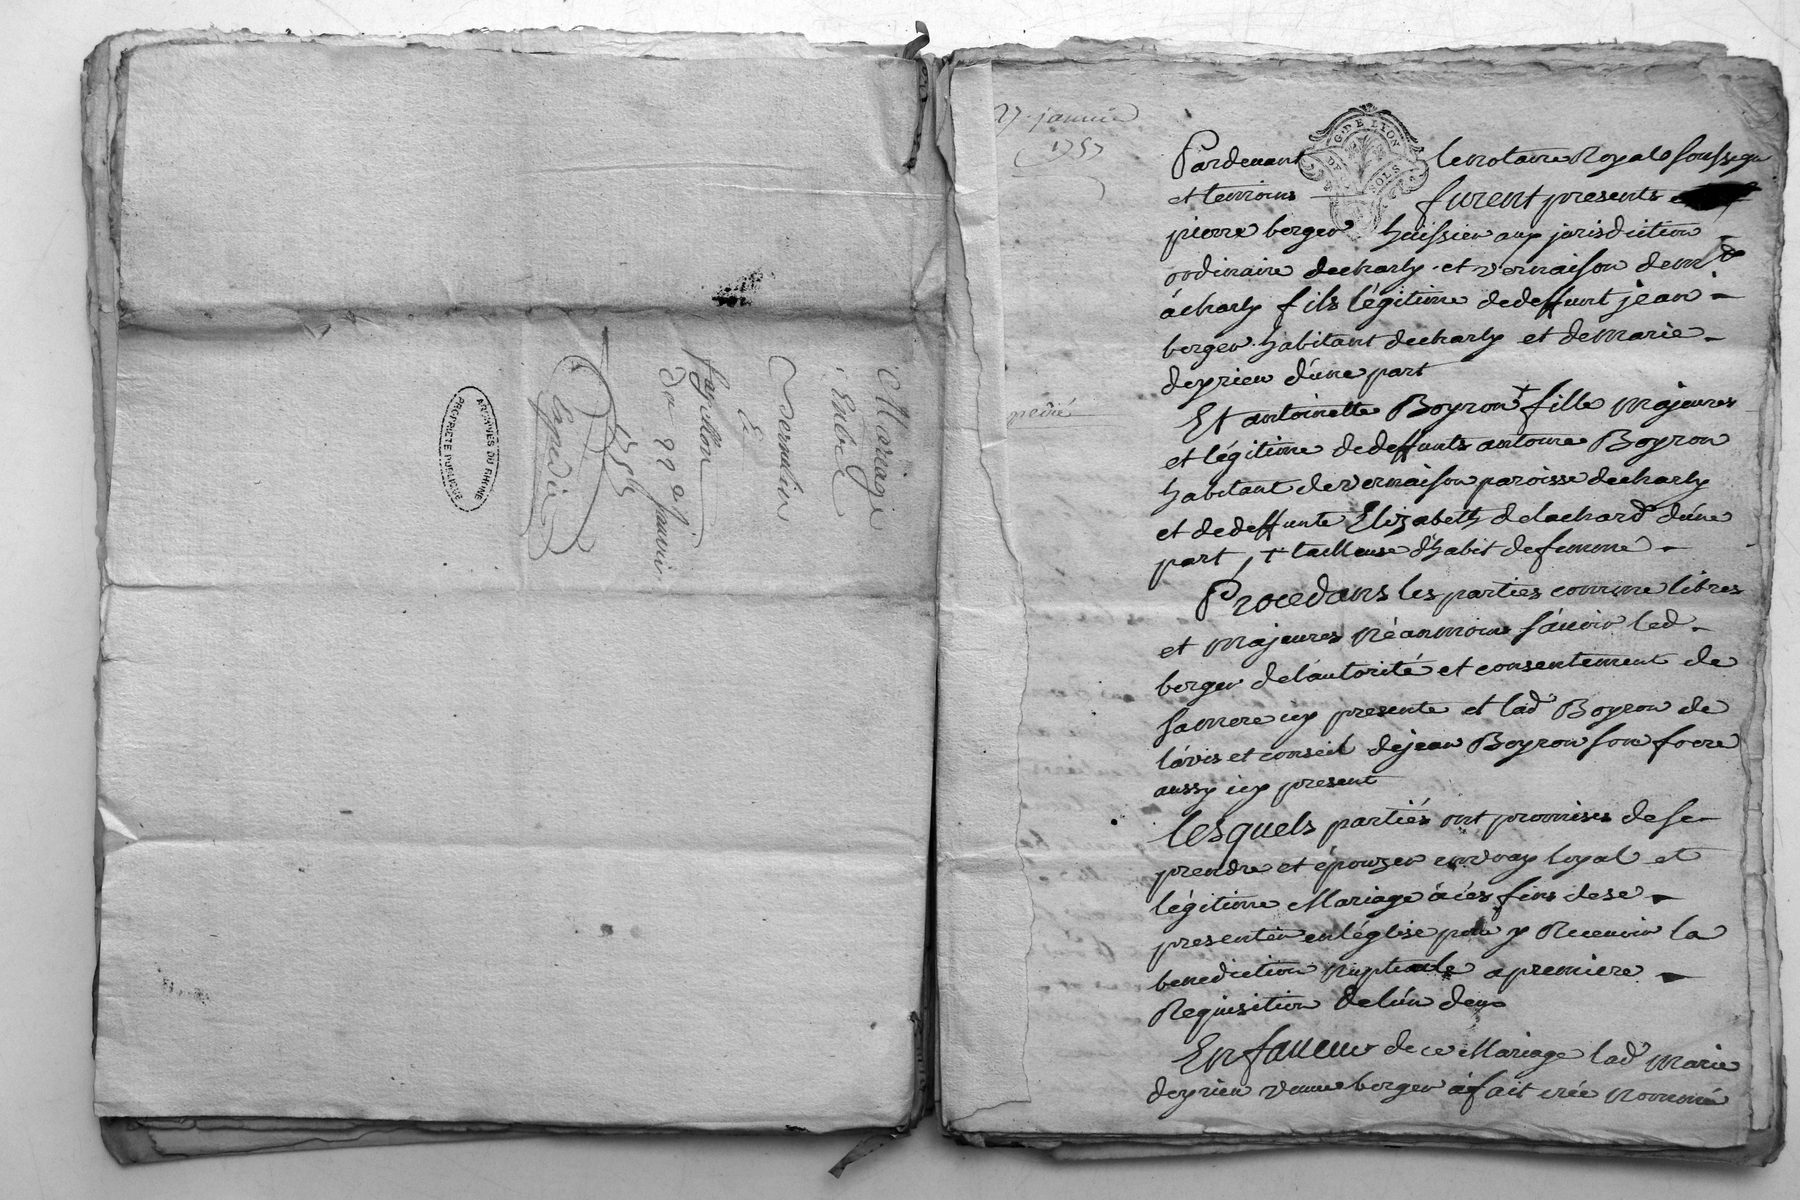 Mariage
Entre
Verndin
&
fayollon
Du 22e Janvier
1757
Expedié
ARCHIVES DU RHONE
PROPRIÉTÉ PUBLIQUE
27. janvier
1757
pedié
G. DE LYON
SOLS
Pardevant le notaire Royal soussigné
et temoins furent presents
pierre berger huissier aux jurisdiction
ordinaire decharly et vernaison demt
à charly fils légitime dedeffunt jean
berger habitant decharly et demarie
deyrieu d'une part
Et antoinette Boyron + fille majeures
et légitime dedeffunts antoine Boyron
habitant devernaison paroisse decharly
et dedeffunte Elizabeth delachard d'une
part, + tailleuse d'habit defemme
Procedans les parties comme libres
et majeures néanmoins sçauoir led.
berger del'autorité et consentement de
sa mere icy presente et lad Boyron de
l'avis et conseil dejean Boyron son frere
aussy icy present
lesquels partiés ont promises dese
prendre et épouzer envray loyal et
légitime Mariage à ces fins dese
presenter en l'église pour y Recevoir la
benediction nuptialle a premiere
Requisition del'un deux
En faueur de ce Mariage lad Marie
deyrieu veuue berger à fait crée nommé